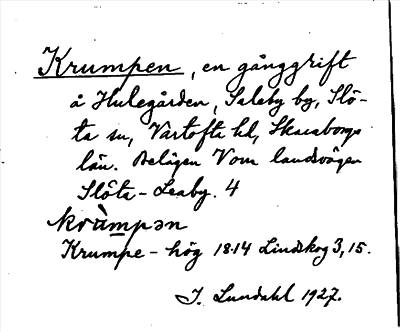 Krumpen, en gånggrift
å Hulegården, Saleby by, Slö-
ta sn, Vartofta hd, Skaraborgs
län. Belägen V om landsvägen
Slöta - Leaby. 4
kràmpən
Krumpe - hög 1814 Lindskog 3, 15.
J. Lundahl 1927.